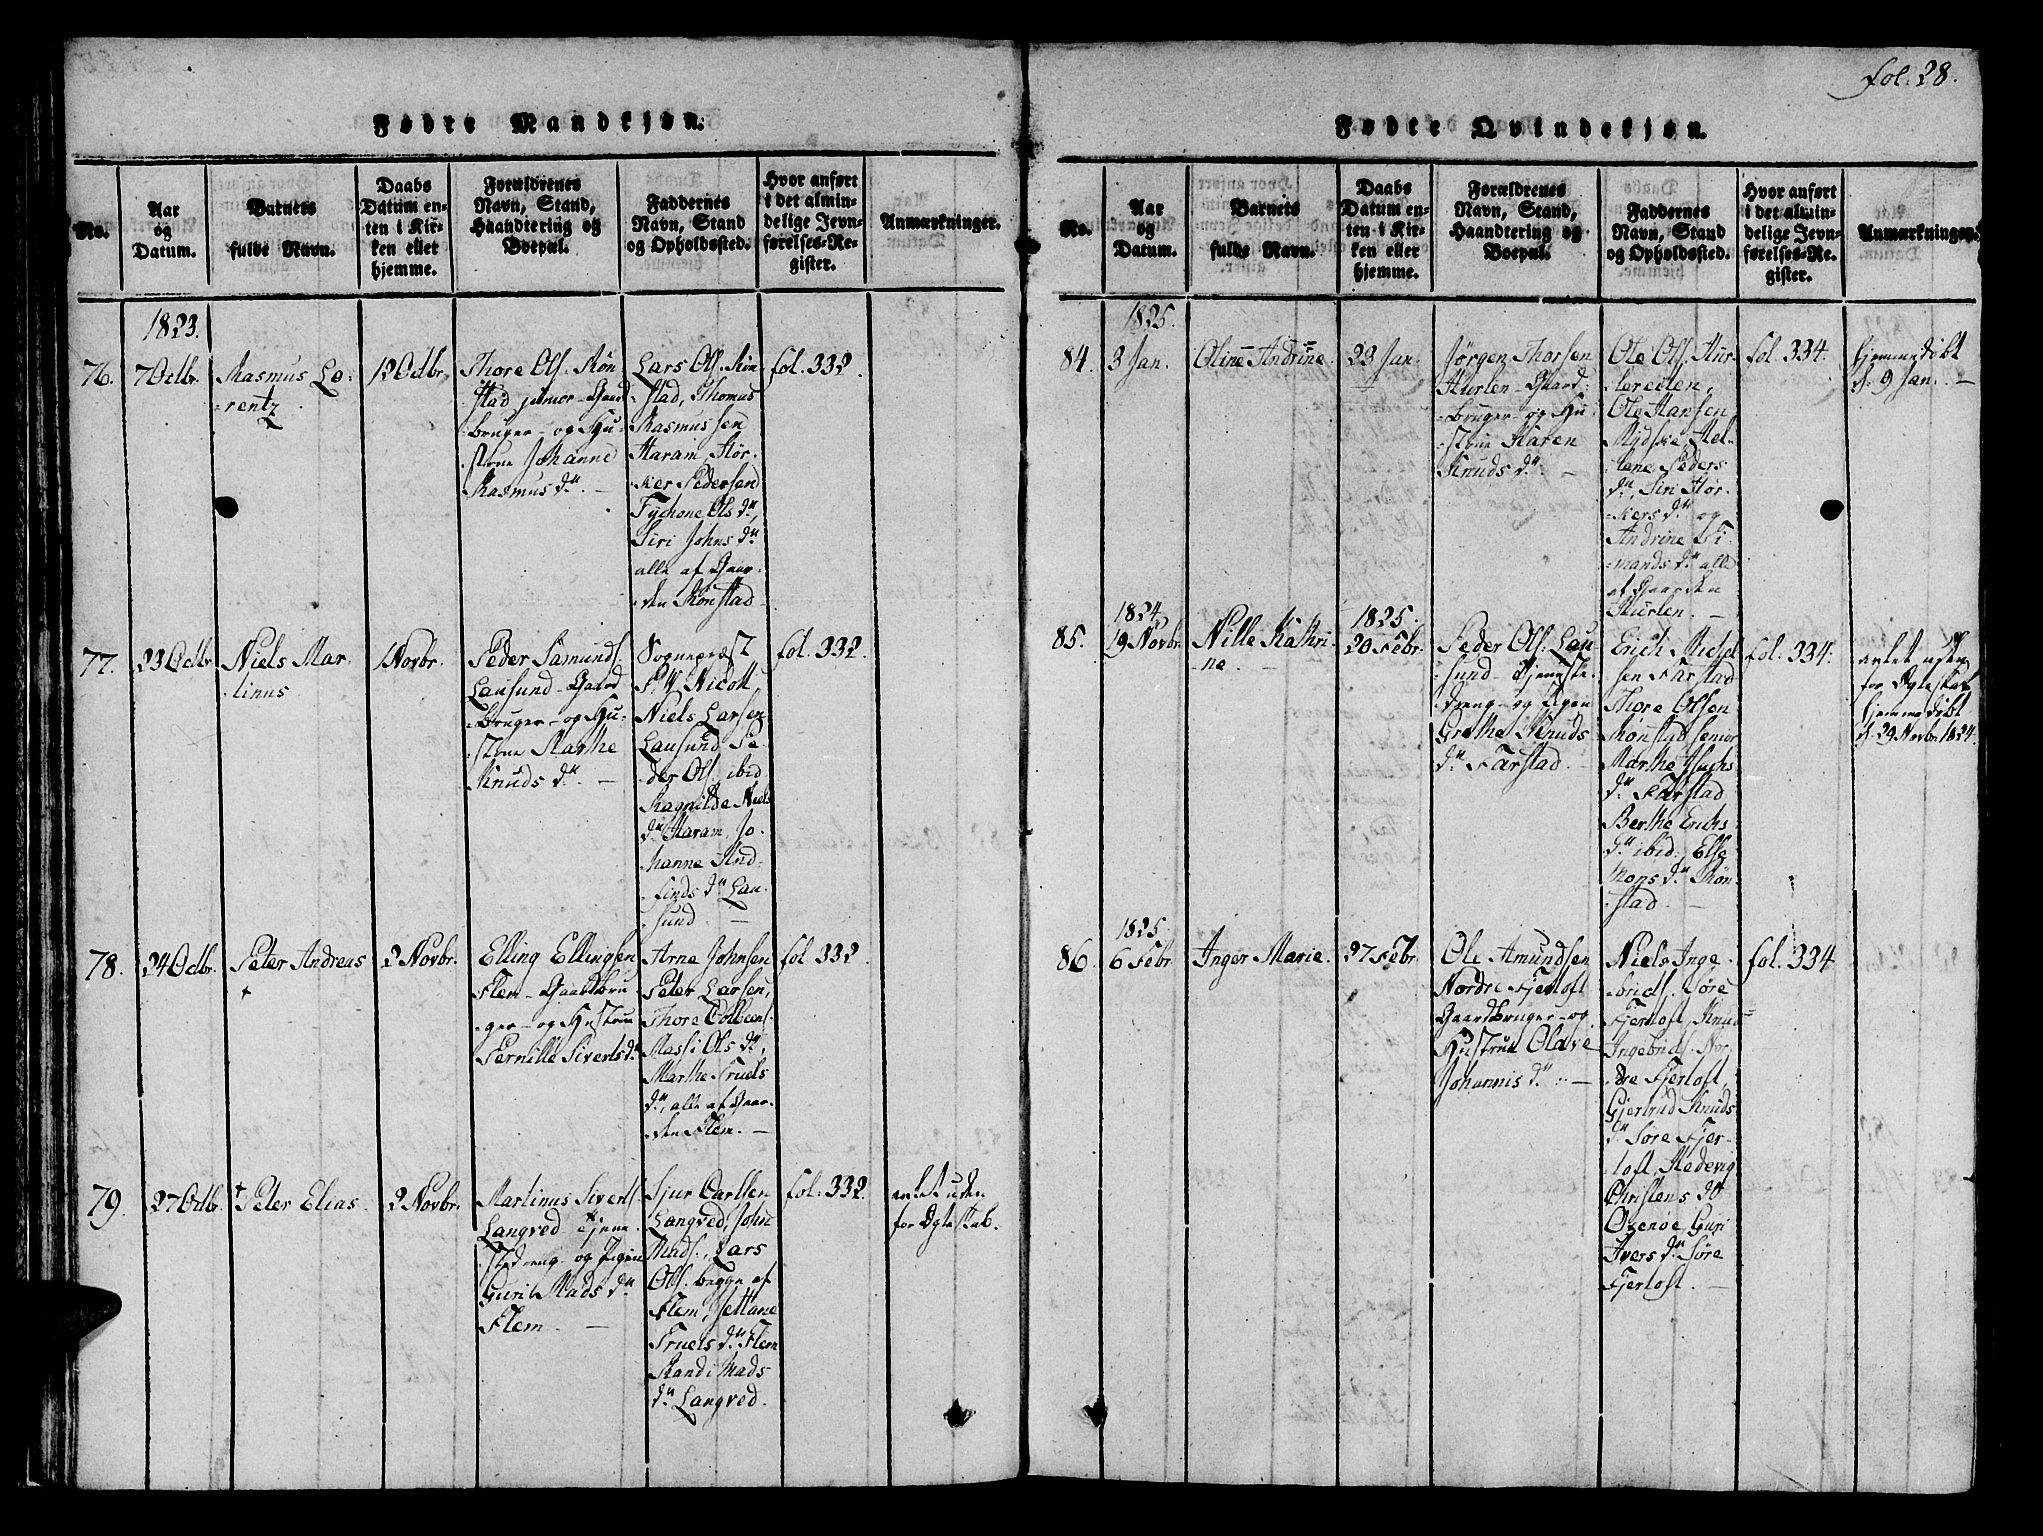 fol. 28.
Fødte Mandkjøn.
No.
Aar
og
Datum.
Barnets
fulde Navn.
Daabs
Datum en-
ten i Kir-
ken eller
hjemme.
Forældrenes
Navn, Stand,
Haandtering og
Boepæl.
Faddernes
Navn, Stand
og Opholdssted.
Hvor anført
i det almin-
delige Jevn-
førelses-Re-
gister.
Anmærkninger.
1823.
76.
7 Octbr.
Rasmus Lo-
rentz
12 Octbr.
Thore Ols. Røn
stad junior Gaard
bruger og Hu-
strue Johanne
Rasmus dr.
Lars Ols. Røn
stad, Thomas
Rasmussen
Haram, Stør-
ker Pedersen
Tychone Ols dr.,
Siri Johns dr.
alle af Gaar-
den Rønstad
fol. 332.
77.
23 Octbr.
Niels Mar-
tinus
1 Novbr.
Peder Samunds.
Lausund Gaard
bruger og Hu-
strue Marthe
Knuds dr.
Sognepræst
P. W. Nicoll,
Niels Larsen
Lausund, Pe-
der Ols. ibid
Ragnilde Niels
dr. Haram, Jo-
hanne And-
finds dr. Lau-
sund
fol. 332.
78.
24 Octbr.
Peter Andreas
2 Novbr.
Elling Ellingsen
Flem Gaardbru
ger og Hustrue
Pernille Siverts dr.
Arne Johnsen
Peter Larsen,
Thore Colbeens.
Massi Ols dr.,
Marthe Truels
dr., alle af Gaar-
den Flem.
fol. 332.
79.
27 Octbr.
Peter Elias.
2 Novbr.
Martinus Siverts.
Langved Tjene-
stedreng og Pigen
Guri Mads dr.
Flem.
Sjur Carlsen
Langved, John
Mads., Lars
Ols. begge af
Flem, Jettane
Truels dr. Flem
Randi Mads
dr. Langved.
fol. 332.
avlet uden
for Egteskab.
Fødte Qvindekjøn.
No.
Aar
og
Datum.
Barnets
fulde Navn.
Daabs
Datum en-
ten i Kir-
ken eller
hjemme.
Forældrenes
Navn, Stand,
Haandtering og
Boepæl.
Faddernes
Navn, Stand
og Opholdssted.
Hvor anført
i det almin-
delige Jevn-
førelses-Re-
gister.
Anmærkninger.
1825.
84.
3 Jan.
Oline Andrine.
23 Jan.
Jørgen Thorsen
Hurlen Gaard-
bruger og Hu-
strue Karen
Knuds dr.
Ole Ols. Hur-
lereiten,
Ole Hansen
Rydske, Hel-
lene Peders
dr., Siri Stør-
kers dr. og
Andrine Ti-
mands dr. alle
af Gaarden
Hurlen.
fol. 334.
hjemmedøbt
d. 9 Jan.
1824.
85.
19 Novbr.
Nille Kathri-
ne
1825.
20 Febr.
Peder Ols. Lau-
sund Tjeneste-
dreng og Pigen
Grethe Knuds
dr. Farstad.
Erich Michel
sen Farstad
Thore Olsen
Rønstad senior
Marthe Isachs
dr. Farstad
Berthe Erichs
dr. ibid., Else
Mons dr. Røn-
stad
fol. 334.
avlet uden
for Egteskab
hjemmedøbt
d. 29 Novbr. 1824.
1825.
86.
6 Febr.
Inger Marie.
27 Febr.
Ole Amundsen
Nordre Fjertoft
Gaardbruger og
Hustrue Olave
Johannis dr.
Niels Inge-
brids. Søre
Fjertoft, Knud
Ingebrids. Nor-
dre Fjertoft,
Gjertrud Knuds
dr. Søre Fjer-
toft, Hedevig
Christens dr
Oxenøe, Guri
Ivers dr. Søre
Fjertoft.
fol. 334